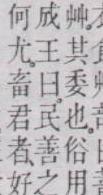 艸其委也。俗用
成王曰。民善之
何尤。畜君者、好